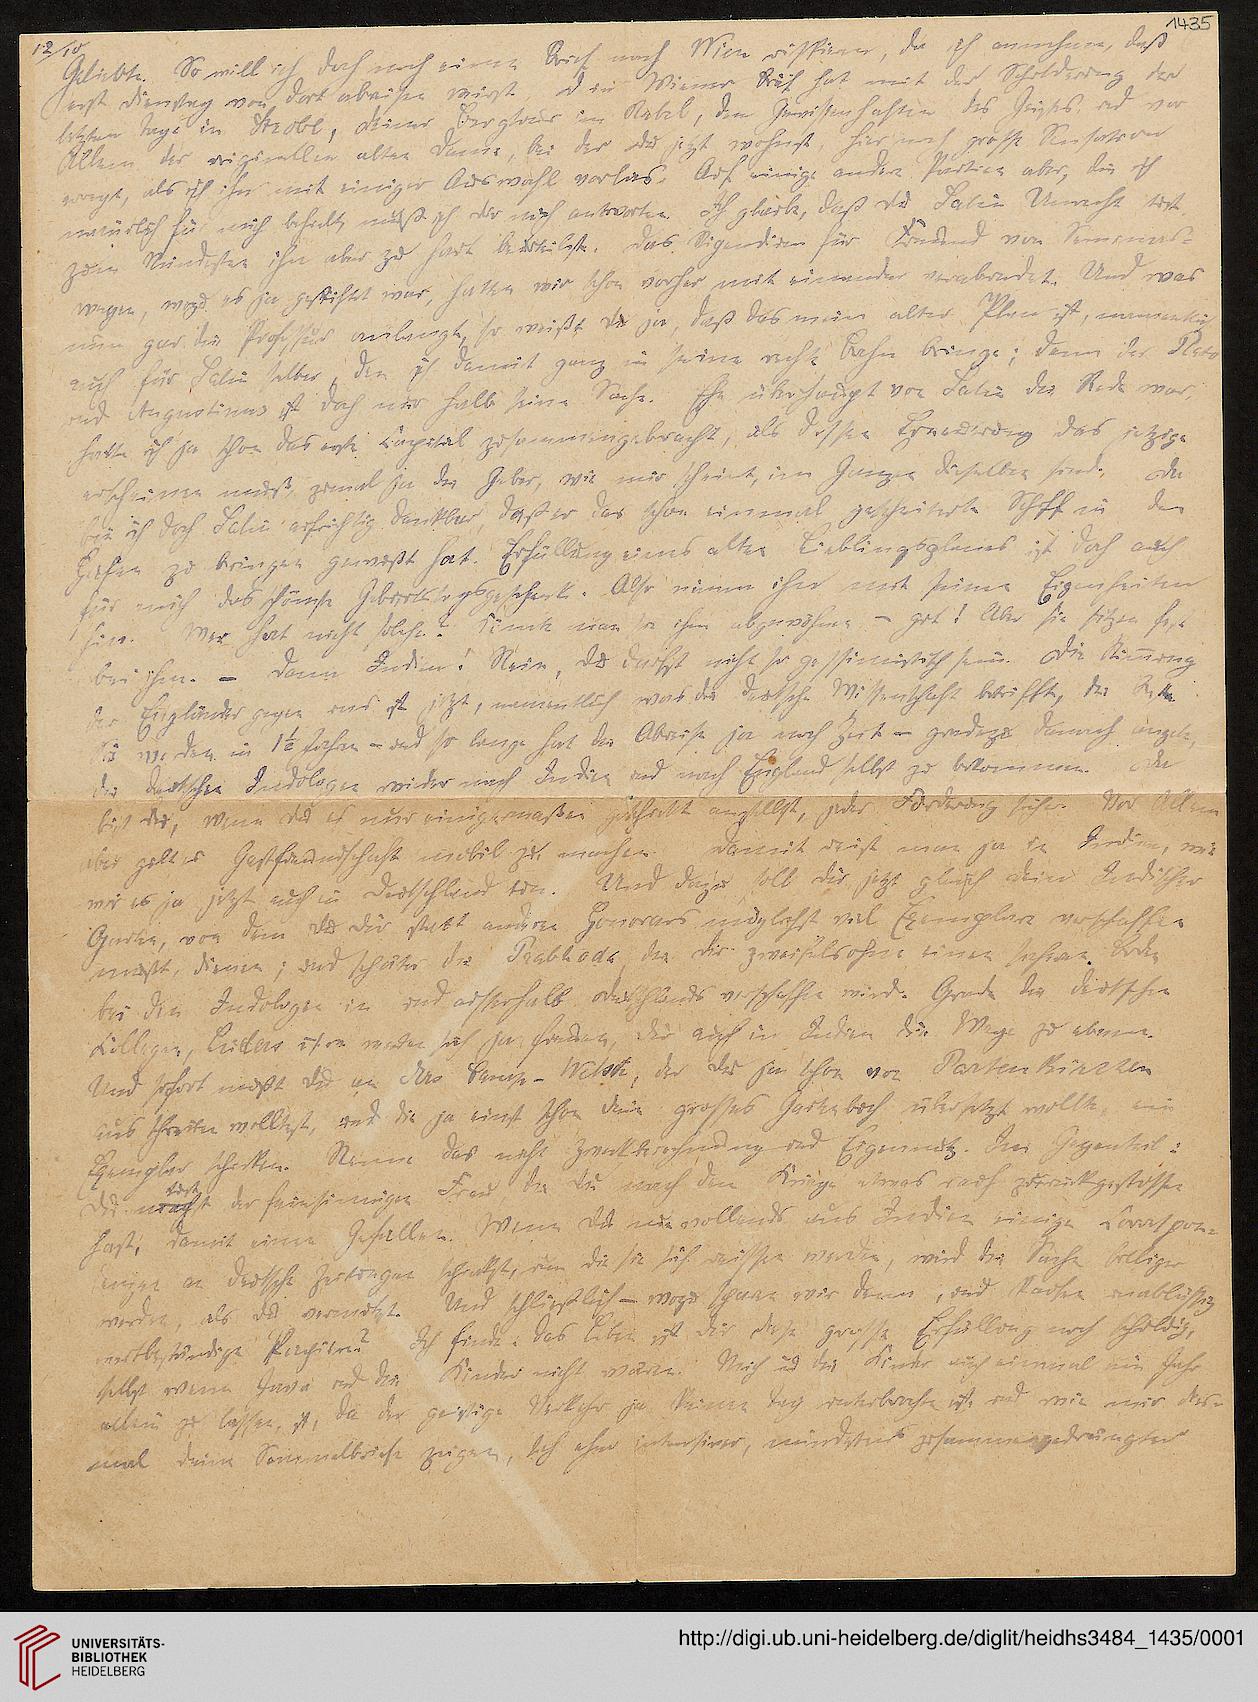 1435
12/10
Geliebte. So will ich doch noch einen Brief nach Wien riskieren, da ich annehme, daß
erst Dienstag von dort abreisen wirst. Dein Wiener Brief hat mit der Schilderung der
letzten Tage in Strobl, Deiner Bergtour im Nebel, den Gewissenhaften des Geistes und vor
Allem der originellen alten Dame, bei der Du jetzt wohnst, hier noch große Sensation
erregt, als ich ihn mit einiger Auswahl vorlas. Auf einige andere Partien aber, die ich
natürlich für mich behielt, muß ich Dir noch antworten. Ich glaube, daß Du Salin Unrecht tust,
zum Mindesten ihn aber zu hart beurteilst. Das Stipendium für
wegen, wozu es ja gestiftet war, hatten wir schon vorher mit einander verabredet. Und was
nun gar die Professur anlangt, so weißt Du ja, daß das mein alter Plan ist, namentlich
auch für Salin selber, den ich damit ganz in seine rechte Bahn bringe; denn der Plato
und Augustinus ist doch nur halb seine Sache. Ehe überhaupt von Salin die Rede war,
hatte ich ja schon das erste Capital zusammengebracht, als dessen Erneuerung das jetzige
erscheinen muß, zumal ja die Geber, wie mir scheint, im Ganzen dieselben sind. Da
bin ich doch Salin aufrichtig dankbar, daß er das schon einmal gescheiterte Schiff in den
Hafen zu bringen gewußt hat. Erfüllung eines alten Lieblingsplanes ist doch auch
für mich das schönste Geburtstagsgeschenk. Also nimm ihn mit seinen Eigenheiten
hin. Wer hat nicht solche? Könnte man sie ihm abgewöhnen – gut! Aber sie sitzen fest
bei ihm. – Dann Indien! Nein, Du darfst nicht so pessimistisch sein. Die Stimmung
der Engländer gegen uns ist jetzt, namentlich was die deutsche Wissenschaft betrifft, die
Sie werden in 1½ Jahren – und so lange hat die Abreise ja noch Zeit – geradezu danach angeln,
die deutschen Indologen wieder nach Indien und nach England selbst zu bekommen. Da
bist Du, wenn Du es nur einigermaßen geschickt anstellst, jeder Förderung sicher. Vor Allem
aber gilt es Gastfreundschaft mobil zu machen. Damit reist man ja in Indien, wie
wir es ja jetzt auch in Deutschland tun. Und dazu soll Dir jetzt gleich Deine Indischer
Garten, von dem Du Dir statt anderen Honorars möglichst viel Exemplare verschaffen
mußt, dienen; und später die Prabhada, die Dir zweifelsohne einen sicheren Boden
bei den Indologen in und außerhalb Deutschlands verschaffen wird. Grade die deutschen
Kollegen, Lüders usw werden sich ja freuen, Dir auch in Indien die Wege zu ebnen.
Und sofort mußt Du an Mrs, der Du ja schon von Partenkirchen
aus schreiben wolltest, und die ja einst schon Dein großes Gartenbuch übersetzen wollte, ein
Exemplar schicken. Nenne das nicht Zweckberechnung und Eigennutz. Im Gegenteil:
Du machst tust der feinsinnigen Frau, die Du nach dem Kriege etwas rauh zurückgestoßen
hast, damit einen Gefallen. Wenn Du nun vollends aus Indien einige Correspon-
denzen an deutsche Zeitungen schickst, um die sie sich reißen werden, wird die Sache billiger
werden, als Du vermutest. Und schließlich – wozu sparen wir denn, und kaufen unablässig
wertbeständige Papiere? Ich finde: das Leben ist Dir diese große Erfüllung noch schuldig,
selbst wenn Java und die Kinder nicht wären. Mich und die Kinder auch einmal ein Jahr
allein zu lassen, ist, da der geistige Verkehr ja keinen Tag unterbrochen ist und wie mir dies-
mal Deine Sammelbriefe zeigen, sich eher intensiver, mindestens zusammengedrängter
UNIVERSITÄTS-
BIBLIOTHEK
HEIDELBERG
http://digi.ub.uni-heidelberg.de/diglit/heidhs3484_1435/0001